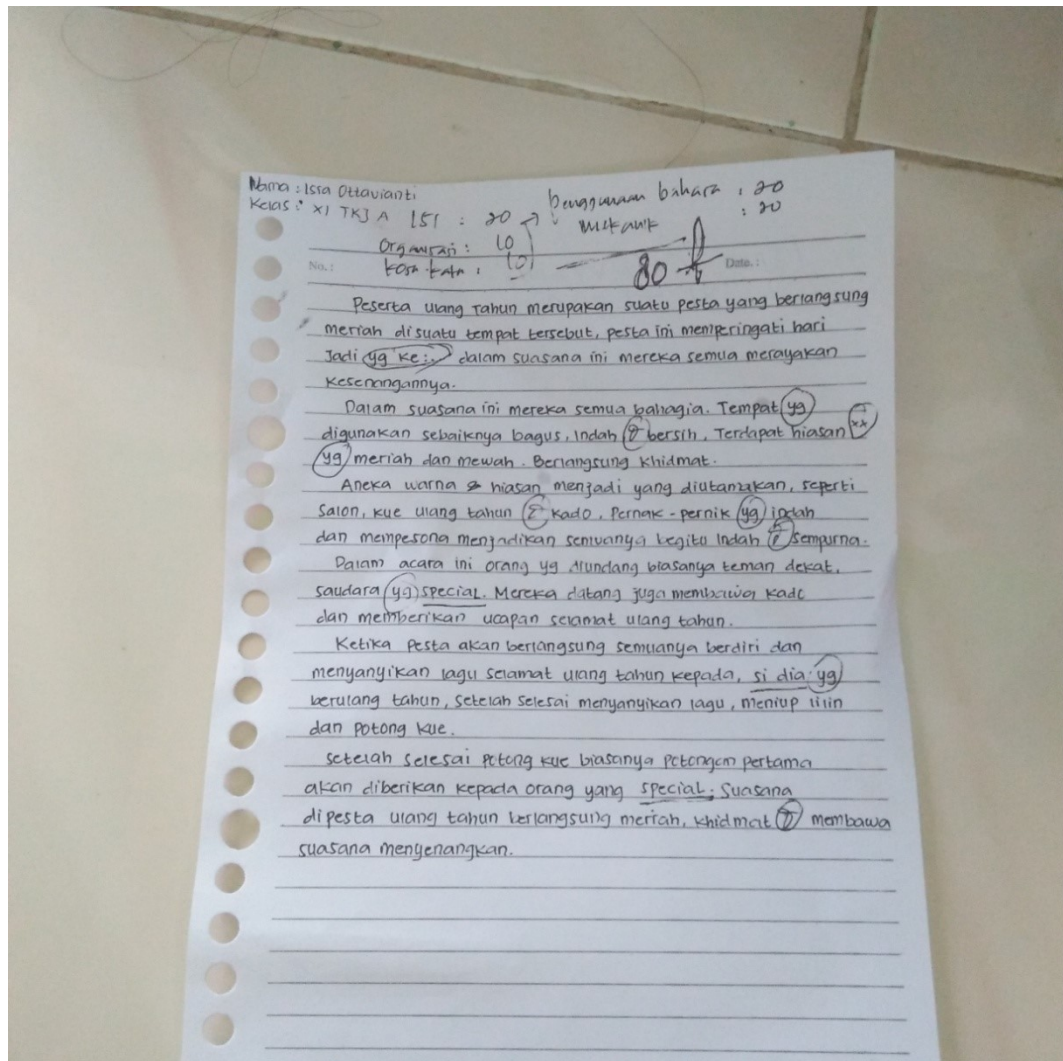 Nama : Issa Ottavianti
Kelas : XI TKJ A
ISI : 20
Penggunaan bahasa : 20
mekanik : 20
Organisasi : 10
kosa kata : 10
80
No. :
Date. :
Peserta ulang Tahun merupakan suatu pesta yang berlangsung
meriah disuatu tempat tersebut, pesta ini memperingati hari
Jadi yg ke... dalam suasana ini mereka semua merayakan
kesenangannya.
Dalam suasana ini mereka semua bahagia. Tempat yg
digunakan sebaiknya bagus, Indah & bersih, Terdapat hiasan xx
yg meriah dan mewah. Berlangsung khidmat.
Aneka warna & hiasan menjadi yang diutamakan, seperti
salon, kue ulang tahun & kado, Pernak-pernik yg indah
dan mempesona menjadikan semuanya begitu Indah & sempurna.
Dalam acara ini orang yg diundang biasanya teman dekat,
saudara yg special. Mereka datang juga membawa kado
dan memberikan ucapan selamat ulang tahun.
Ketika Pesta akan berlangsung semuanya berdiri dan
menyanyikan lagu selamat ulang tahun kepada, si dia yg
berulang tahun, setelah selesai menyanyikan lagu, meniup lilin
dan potong kue.
setelah selesai potong kue biasanya potongan pertama
akan diberikan kepada orang yang special. Suasana
dipesta ulang tahun berlangsung meriah, khidmat & membawa
suasana menyenangkan.